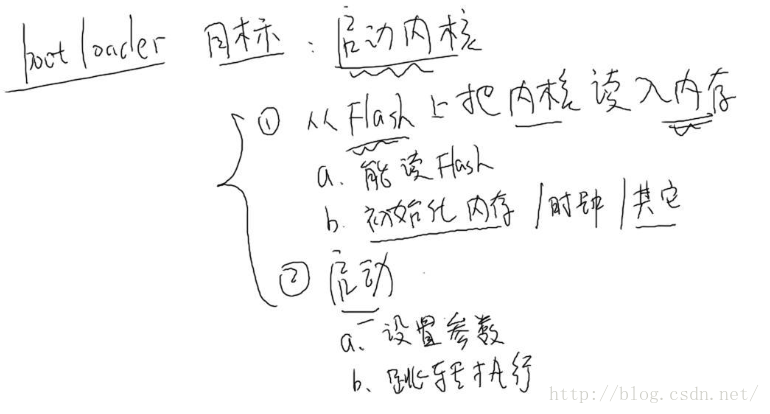 bootloader 目标：启动内核
① 从Flash上把内核读入内存
a. 能读Flash
b. 初始化内存/时钟/其它
② 启动
a. 设置参数
b. 跳转执行
http://blog.csdn.net/